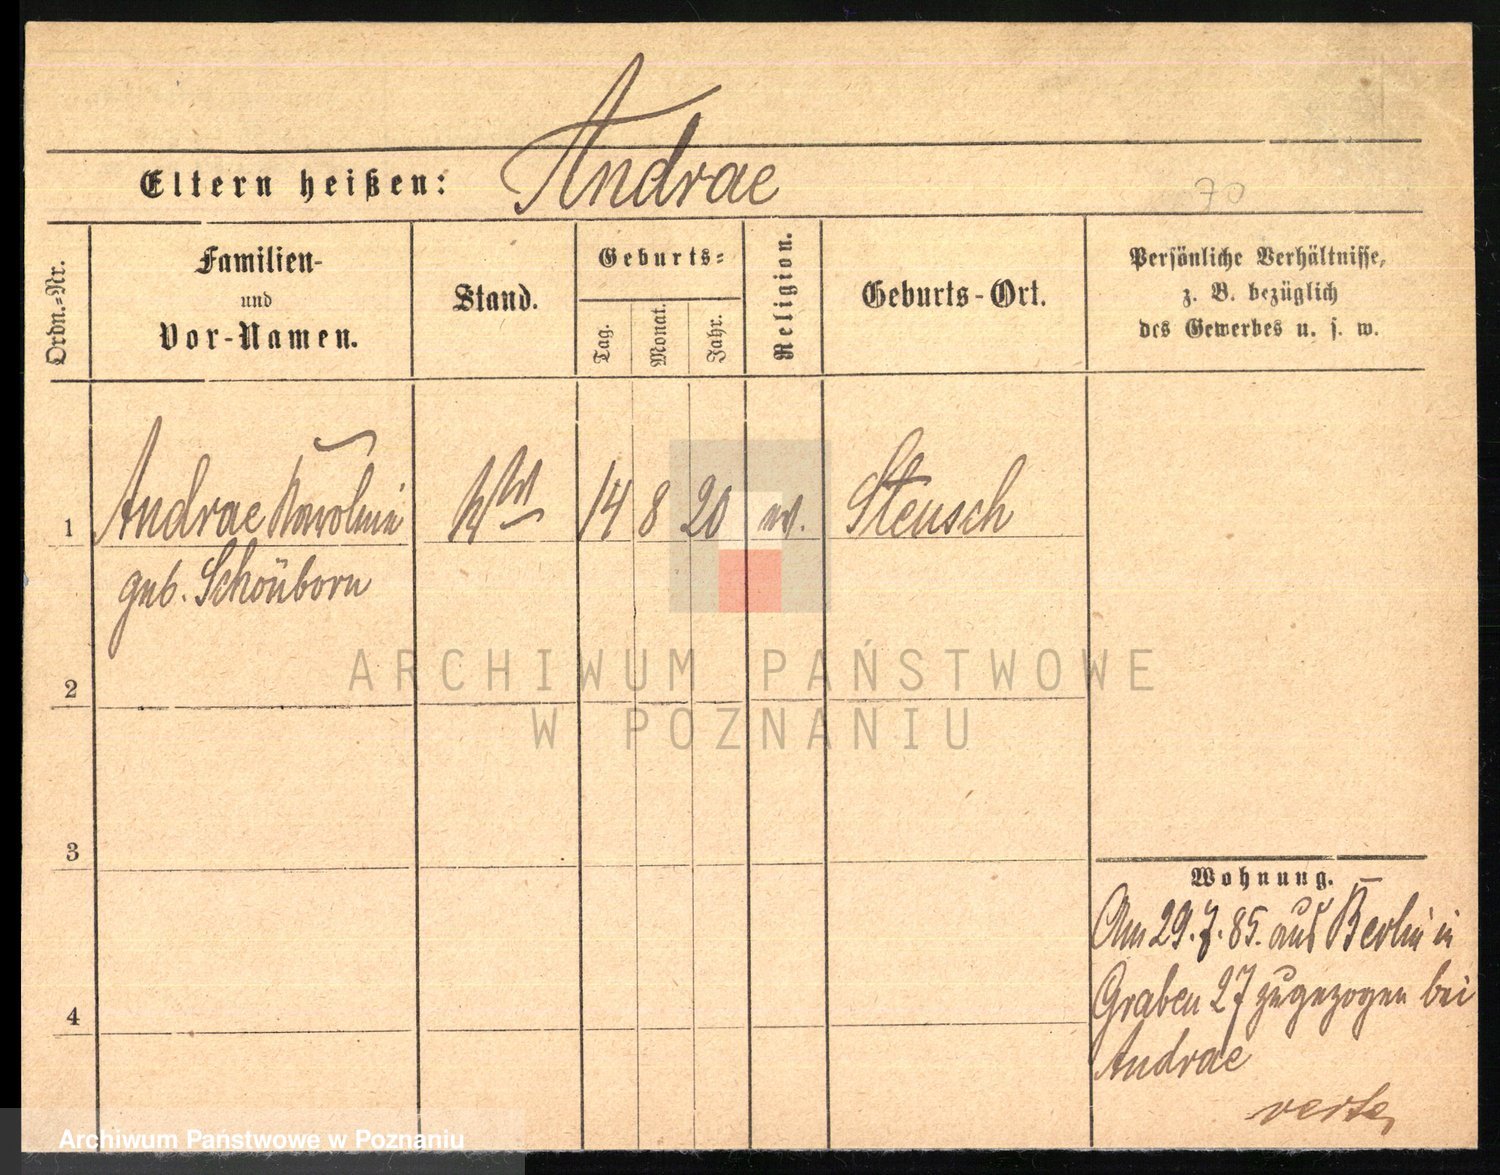 Eltern heißen: Andrae
70
Ordn.=Nr.
Familien-
und
Vor-Namen.
Stand.
Geburts=
Tag.
Monat.
Jahr.
Religion.
Geburts-Ort.
Persönliche Verhältnisse,
z. B. bezüglich
des Gewerbes u. s. w.
1 Andrae Karoline Wwe 14 8 20 ev. Steusch
geb. Schönborn
2
3
4
Wohnung.
Am 29.7.85. aus Berlin in
Graben 27 zugezogen bei
Andrae
verte
ARCHIWUM PAŃSTWOWE
W POZNANIU
Archiwum Państwowe w Poznaniu